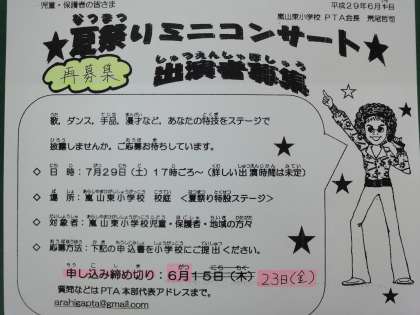 児童・保護者の皆さま
平成29年6月
嵐山東小学校 PTA会長 荒尾哲也
★夏祭りミニコンサート★
再募集
出演者募集
歌、ダンス、手品、漫才など、あなたの特技をステージで
披露しませんか。ご応募お待ちしています。
◇ 日 時：7月29日（土）17時ごろ～（詳しい出演時間は未定）
◇ 場 所：嵐山東小学校 校庭 ＜夏祭り特設ステージ＞
◇ 対象者：嵐山東小学校児童・保護者・地域の方々
◇ 応募方法：下記の申込書を小学校にご提出ください。
申し込み締め切り：6月15日（木） 23日(金)
質問などはPTA本部代表アドレスまで。
arahigapta@gmail.com